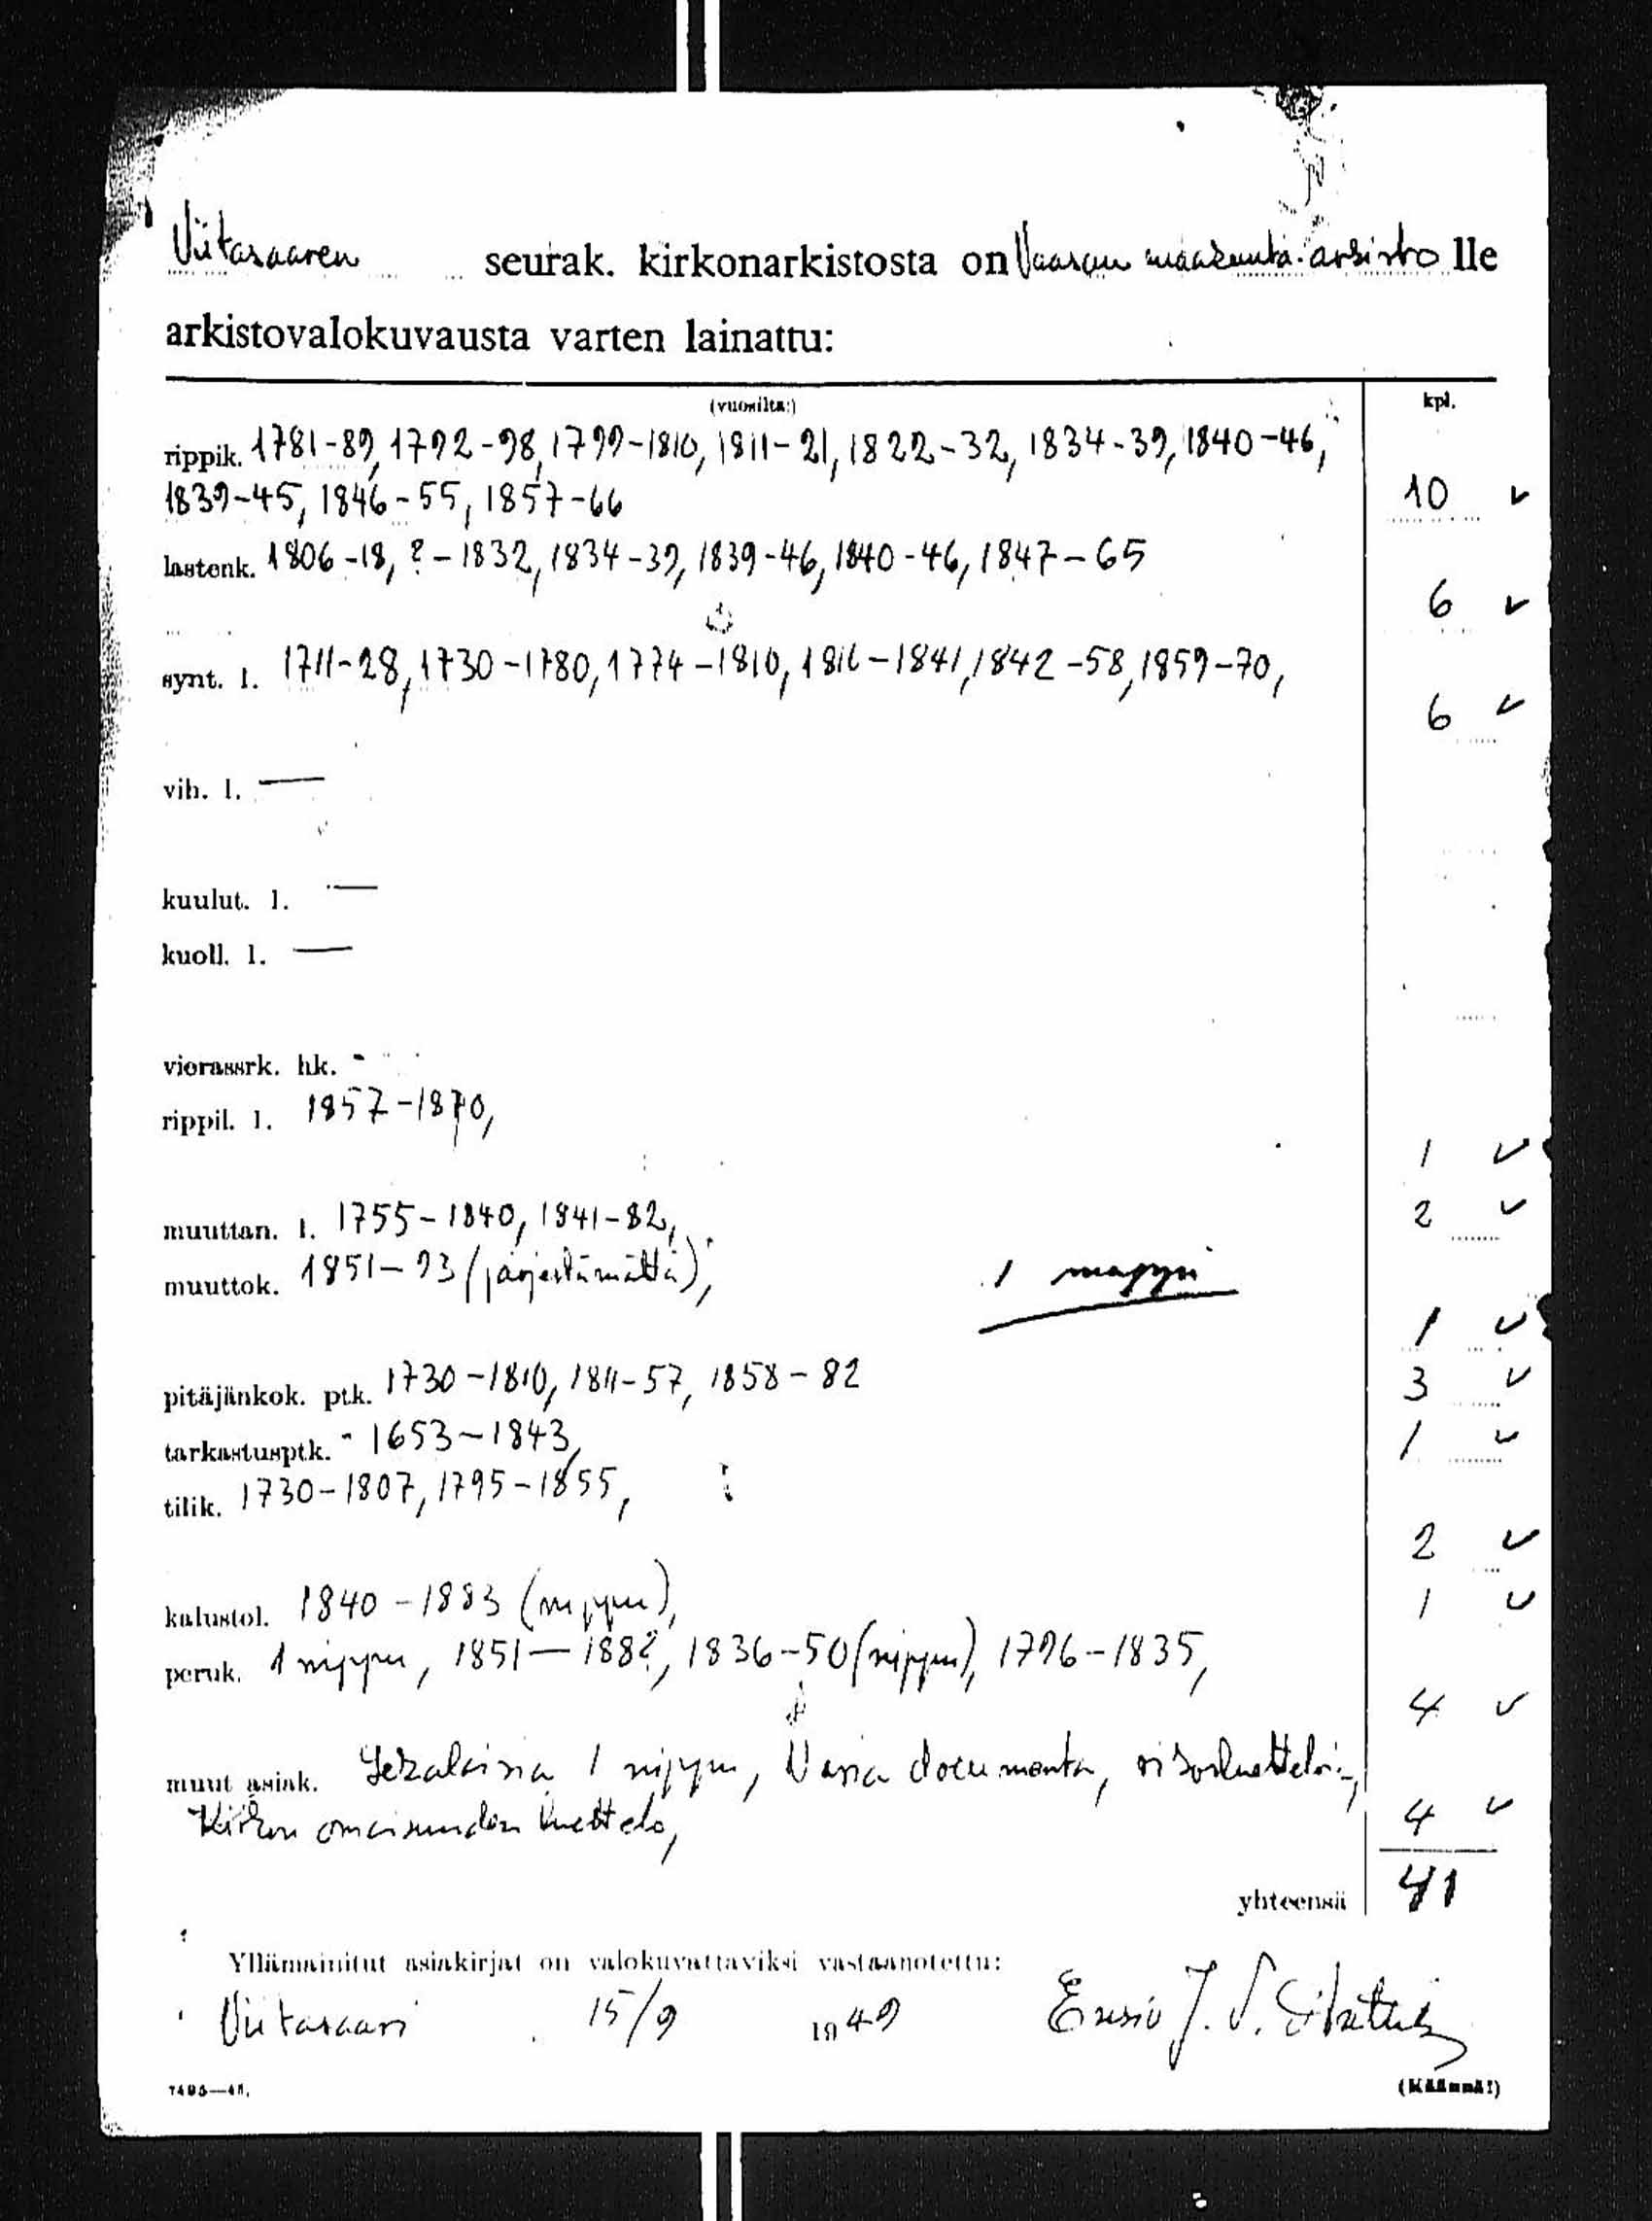 Viitasaaren seurak. kirkonarkistosta on Vaasan maakunta-arkisto lle
arkistovalokuvausta varten lainattu:
(vuosilta:) kpl.
rippik. 1781-89, 1792-98, 1799-1810, 1811-21, 1822-32, 1834-39, 1840-46,
1839-45, 1846-55, 1857-66 10 ✓
lastenk. 1806-18, ?-1832, 1834-39, 1839-46, 1840-46, 1847-65
6 ✓
synt. l. 1711-28, 1730-1780, 1774-1810, 1816-1841, 1842-58, 1859-70,
6 ✓
vih. l. —
kuulut. l. —
kuoll. l. —
vierassrk. hk. -
rippil. l. 1857-1870,
1 ✓
muuttan. l. 1755-1840, 1841-82, 2 ✓
muuttok. 1851-93 (järjestämättä), 1 mappi
1 ✓
pitäjänkok. ptk. 1730-1810, 1811-57, 1858-82 3 ✓
tarkastusptk. - 1653-1843, 1 ✓
tilik. 1730-1807, 1795-1855,
2 ✓
kalustol. 1840-1883 (nippu), 1 ✓
peruk. 1 nippu, 1851-188?, 1836-50 (nippu), 1796-1835,
4 ✓
muut asiak. Sekalaisia 1 nippu, Varia documenta,
Kirkon omaisuuden luettelo, 4 ✓
yhteensä 41
Yllämainitut asiakirjat on valokuvattaviksi vastaanotettu:
Viitasaari 15/9 1949 Ensio J. S.
7495—48. (Käännä!)